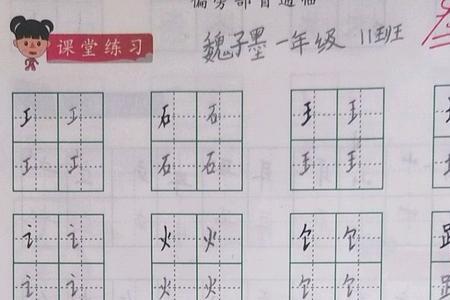 偏旁部首通
课堂练习
魏子墨 一年级 11班
工 工 石 石 王 王
工 工 石 石 王 王
讠 讠 火 火
讠 讠 火 火